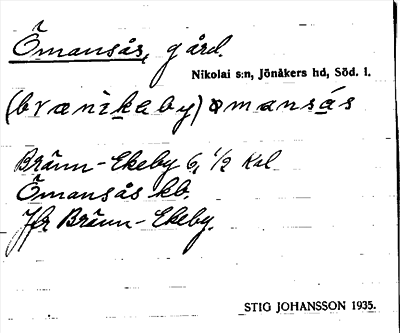 Ömansås, gård.
Nikolai s:n, Jönåkers hd, Söd. l.
(brænikaby) ømansås
Bränn-Ekeby 6, 1/2 Kal.
Ömansås kb.
Jfr Bränn-Ekeby.
STIG JOHANSSON 1935.